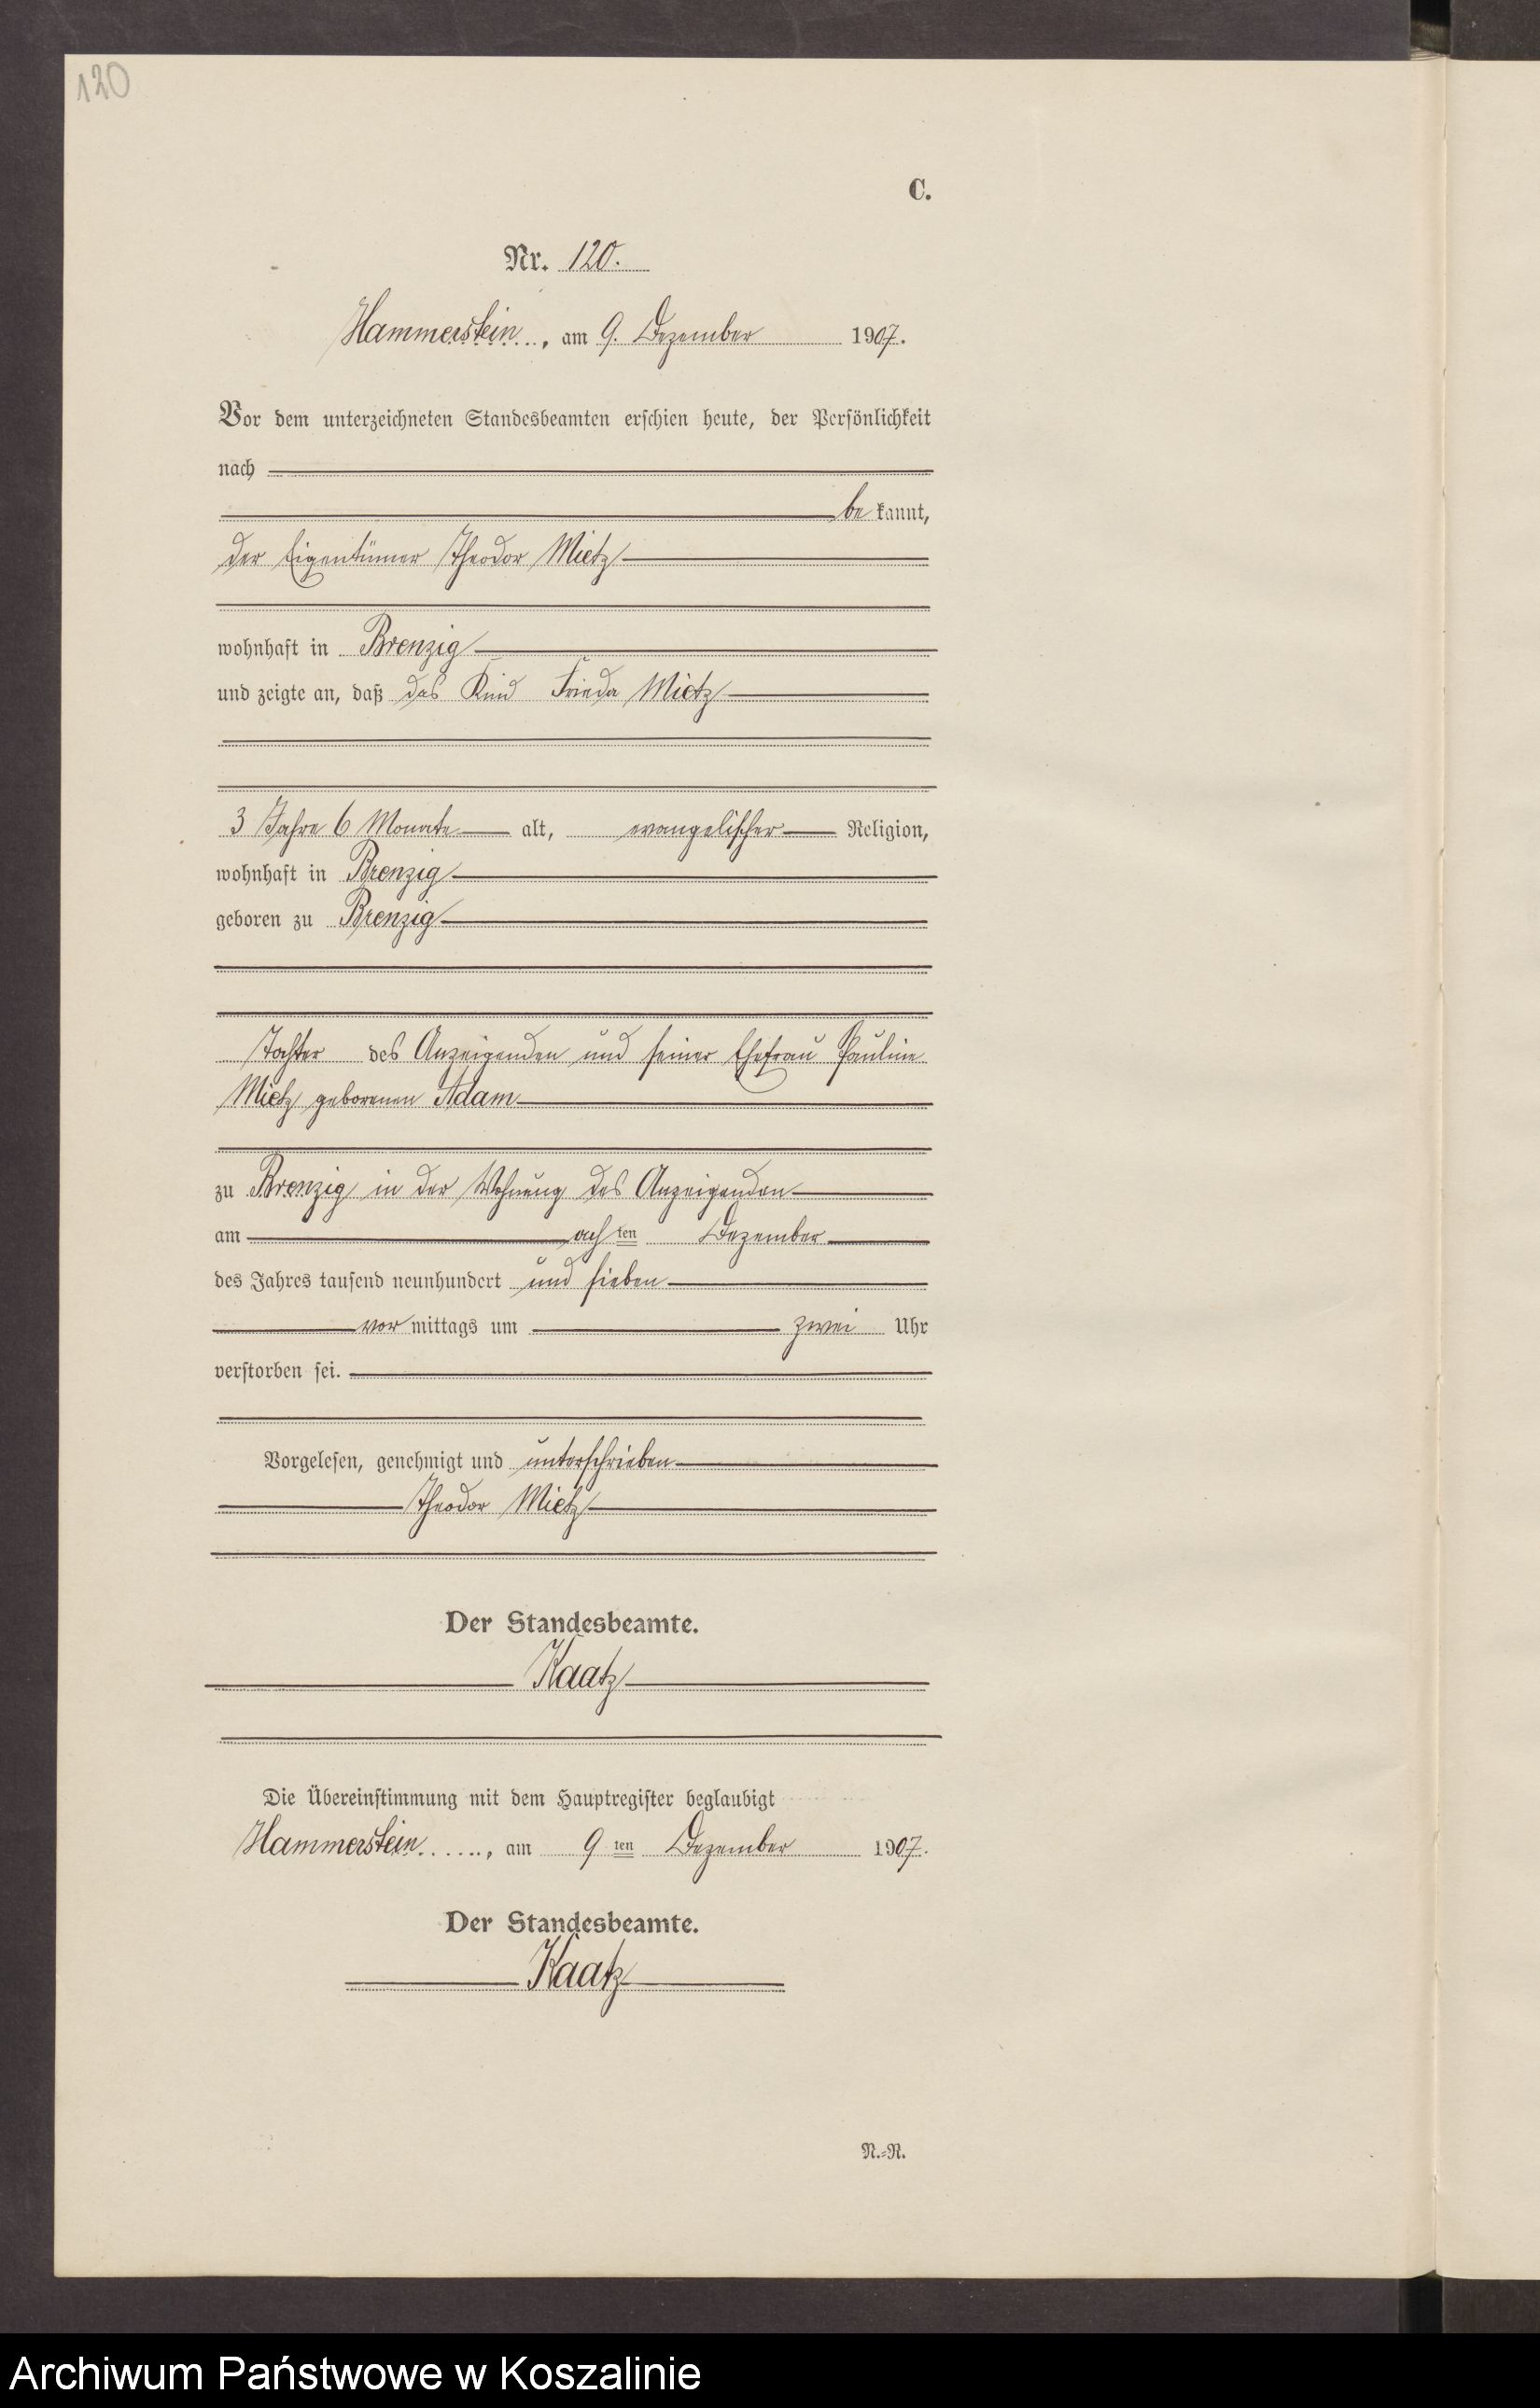 120
C.
Nr. 120.
Hammerstein, am 9. Dezember 1907.
Vor dem unterzeichneten Standesbeamten erschien heute, der Persönlichkeit
nach
be kannt,
der Eigentümer Theodor Mietz
wohnhaft in Brenzig
und zeigte an, daß das Kind Frieda Mietz
3 Jahre 6 Monate alt, evangelischer Religion,
wohnhaft in Brenzig
geboren zu Brenzig
Tochter des Anzeigenden und seiner Ehefrau Pauline
Mietz geborenen Adam
zu Brenzig in der Wohnung des Anzeigenden
am achten Dezember
des Jahres tausend neunhundert und sieben
vor mittags um zwei Uhr
verstorben sei.
Vorgelesen, genehmigt und unterschrieben
Theodor Mietz
Der Standesbeamte.
Kaatz
Die Übereinstimmung mit dem Hauptregister beglaubigt
Hammerstein, am 9ten Dezember 1907.
Der Standesbeamte.
Kaatz
N.=R.
Archiwum Państwowe w Koszalinie